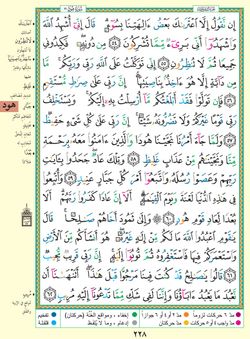 إِن نَّقُولُ إِلَّا ٱعْتَرَىٰكَ بَعْضُ ءَالِهَتِنَا بِسُوٓءٍ ۗ قَالَ إِنِّىٓ أُشْهِدُ ٱللَّهَ
وَٱشْهَدُوٓا۟ أَنِّى بَرِىٓءٌ مِّمَّا تُشْرِكُونَ ٥٤ مِن دُونِهِۦ ۖ فَكِيدُونِى
جَمِيعًا ثُمَّ لَا تُنظِرُونِ ٥٥ إِنِّى تَوَكَّلْتُ عَلَى ٱللَّهِ رَبِّى وَرَبِّكُم ۚ مَّا
مِن دَآبَّةٍ إِلَّا هُوَ ءَاخِذٌۢ بِنَاصِيَتِهَآ ۚ إِنَّ رَبِّى عَلَىٰ صِرَٰطٍ مُّسْتَقِيمٍ
٥٦ فَإِن تَوَلَّوْا۟ فَقَدْ أَبْلَغْتُكُم مَّآ أُرْسِلْتُ بِهِۦٓ إِلَيْكُمْ ۚ وَيَسْتَخْلِفُ
رَبِّى قَوْمًا غَيْرَكُمْ وَلَا تَضُرُّونَهُۥ شَيْـًٔا ۚ إِنَّ رَبِّى عَلَىٰ كُلِّ شَىْءٍ حَفِيظٌ
٥٧ وَلَمَّا جَآءَ أَمْرُنَا نَجَّيْنَا هُودًا وَٱلَّذِينَ ءَامَنُوا۟ مَعَهُۥ بِرَحْمَةٍ
مِّنَّا وَنَجَّيْنَٰهُم مِّنْ عَذَابٍ غَلِيظٍ ٥٨ وَتِلْكَ عَادٌ ۖ جَحَدُوا۟ بِـَٔايَٰتِ
رَبِّهِمْ وَعَصَوْا۟ رُسُلَهُۥ وَٱتَّبَعُوٓا۟ أَمْرَ كُلِّ جَبَّارٍ عَنِيدٍ ٥٩ وَأُتْبِعُوا۟
فِى هَٰذِهِ ٱلدُّنْيَا لَعْنَةً وَيَوْمَ ٱلْقِيَٰمَةِ ۗ أَلَآ إِنَّ عَادًا كَفَرُوا۟ رَبَّهُمْ ۗ أَلَا
بُعْدًا لِّعَادٍ قَوْمِ هُودٍ ٦٠ وَإِلَىٰ ثَمُودَ أَخَاهُمْ صَٰلِحًا ۚ قَالَ
يَٰقَوْمِ ٱعْبُدُوا۟ ٱللَّهَ مَا لَكُم مِّنْ إِلَٰهٍ غَيْرُهُۥ ۖ هُوَ أَنشَأَكُم مِّنَ ٱلْأَرْضِ
وَٱسْتَعْمَرَكُمْ فِيهَا فَٱسْتَغْفِرُوهُ ثُمَّ تُوبُوٓا۟ إِلَيْهِ ۚ إِنَّ رَبِّى قَرِيبٌ مُّجِيبٌ
٦١ قَالُوا۟ يَٰصَٰلِحُ قَدْ كُنتَ فِينَا مَرْجُوًّا قَبْلَ هَٰذَآ ۖ أَتَنْهَىٰنَآ أَن
نَّعْبُدَ مَا يَعْبُدُ ءَابَآؤُنَا وَإِنَّنَا لَفِى شَكٍّ مِّمَّا تَدْعُونَآ إِلَيْهِ مُرِيبٍ ٦٢
هود
٢٢٨